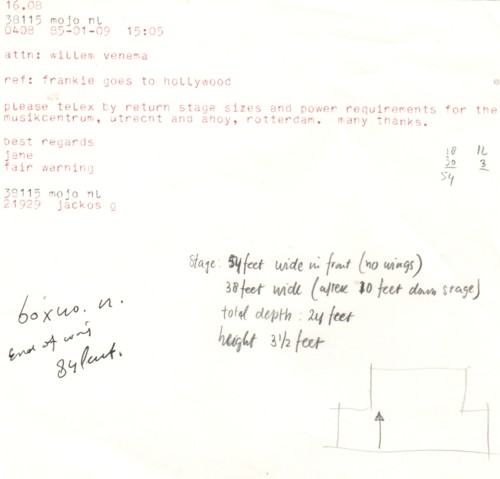 16.08
38115 mojo nl
0408 85-01-09 15:05
attn: willem venema
ref: frankie goes to hollywood
please telex by return stage sizes and power requirements for the
musikcentrum, utrecht and ahoy, rotterdam. many thanks.
best regards
jane
fair warning
38115 mojo nl
21929 jackos g
18 12
30 3
54
Stage: 54 feet wide in front (no wings)
38 feet wide (after 10 feet down stage)
total depth: 24 feet
height 3 1/2 feet
End of